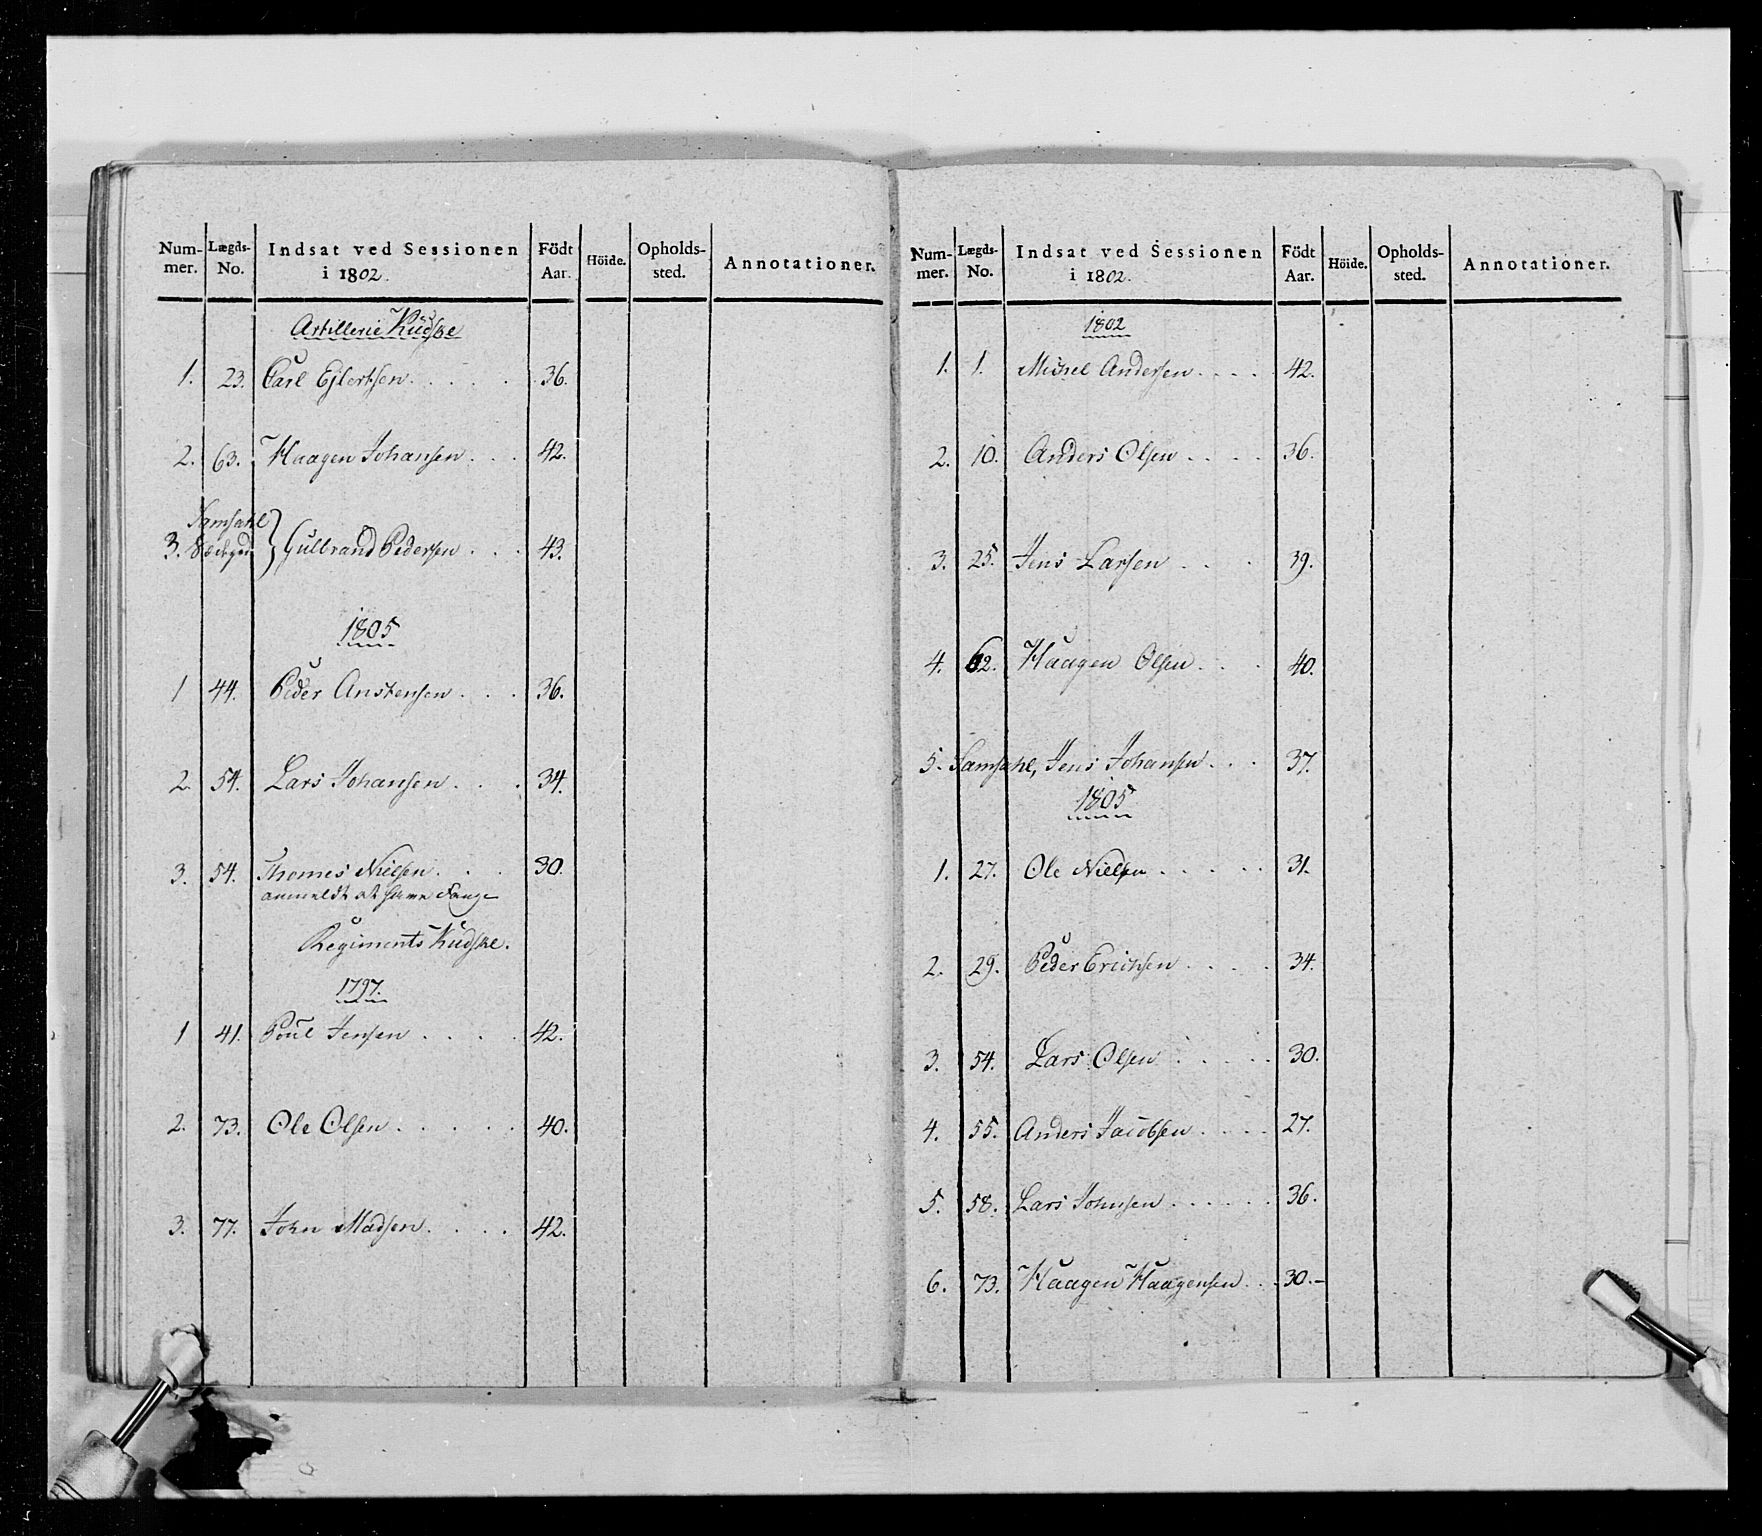 Num-mer. Lægds-No. Indsat ved Sessionen i 1802. Födt Aar. Höide. Opholds-sted. Annotationer.
Artillerie Kudske
1. 23. Carl Ejlertsen. . . . . 36.
2. 63. Haagen Johansen. . . 42.
Samsahl
3. Gulbrand Pedersen . . . 43.
1805
1 44. Peder Anstensen . . . 36.
2. 54. Lars Johansen . . . 34.
3. 54. Thomes Nielsen . . . 30.
anmeldt at have
Regiments Kudske.
1797.
1 41. Poul Jensen . . . . 42.
2. 73. Ole Olsen . . . . . 40.
3. 77. John Madsen. . . . 42.
Num-mer. Lægds-No. Indsat ved Sessionen i 1802. Födt Aar. Höide. Opholds-sted. Annotationer.
1802
1. 1. Michel Andersen . . . . 42.
2. 10. Anders Olsen . . . . 36.
3. 25. Jens Larsen . . . 39.
4. 62. Haagen Olsen . . . 40.
5. Samsahl, Jens Johansen . . . 37.
1805
1. 27. Ole Nielsen . . . . . 31.
2. 29. Peder Erichsen . . . . 34.
3. 54. Lars Olsen . . . . . 30.
4. 55. Anders Jacobsen . . . . 27.
5. 58. Lars Johnsen . . . . . . 36.
6. 73. Haagen Haagensen . . . 30.–